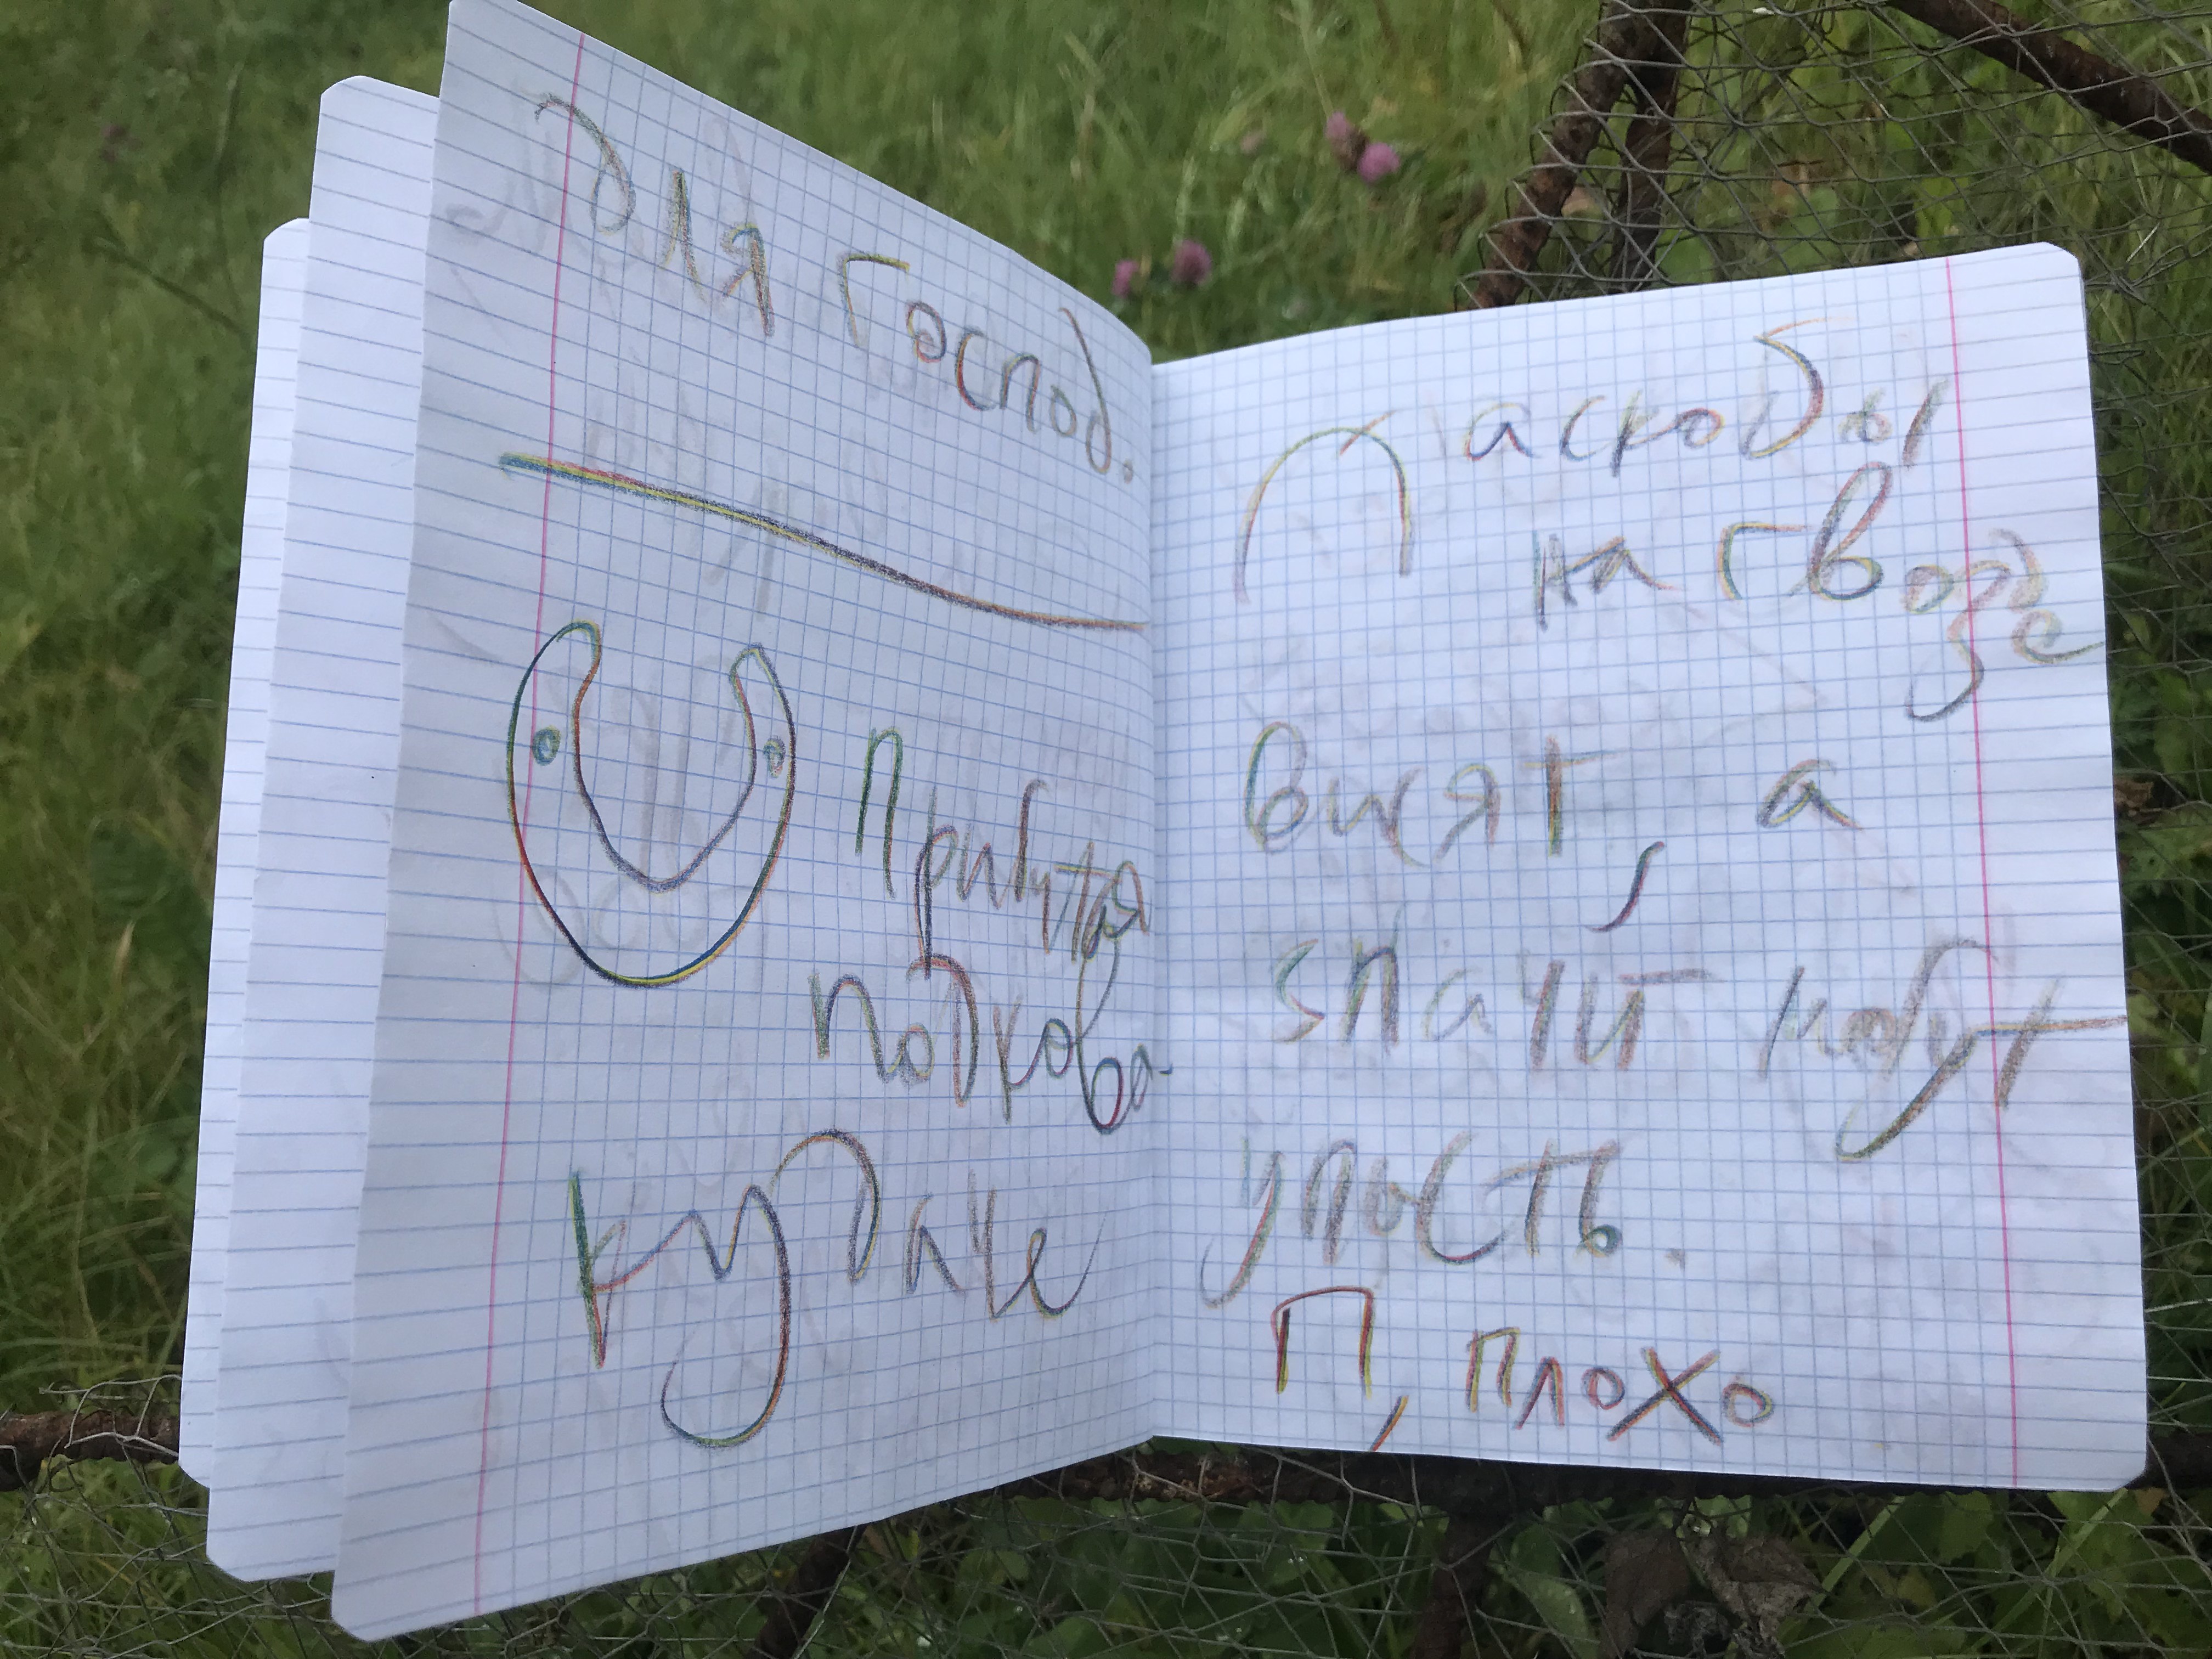 для господ.
прибутая
подкова
к удаче
П аскобы
на гвозде
висят, а
значит мобут
упость.
П, плохо